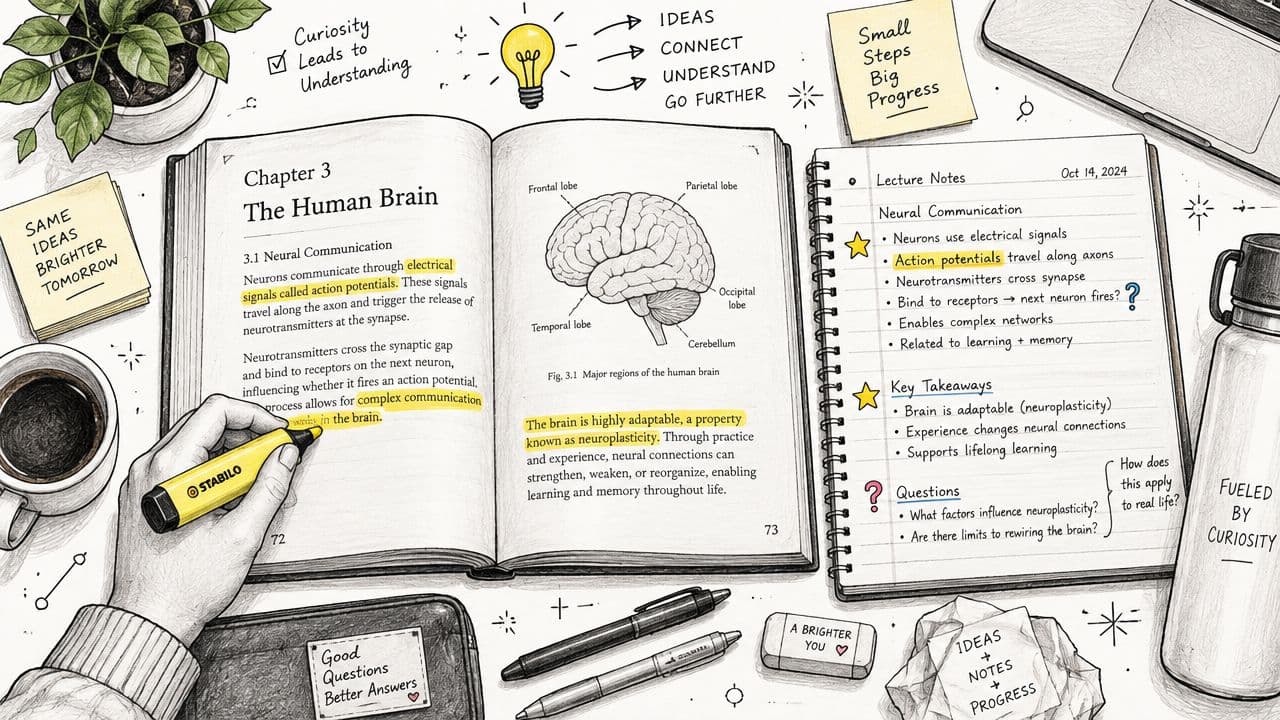 Curiosity
Leads to
Understanding
IDEAS
CONNECT
UNDERSTAND
GO FURTHER
Small
Steps
Big
Progress
SAME
IDEAS
BRIGHTER
TOMORROW
Chapter 3
The Human Brain
3.1 Neural Communication
Neurons communicate through electrical
signals called action potentials. These signals
travel along the axon and trigger the release of
neurotransmitters at the synapse.
Neurotransmitters cross the synaptic gap
and bind to receptors on the next neuron,
influencing whether it fires an action potential.
process allows for complex communication
in the brain.
72
STABILO
Frontal lobe
Parietal lobe
Occipital
lobe
Temporal lobe
Cerebellum
Fig. 3.1 Major regions of the human brain
The brain is highly adaptable, a property
known as neuroplasticity. Through practice
and experience, neural connections can
strengthen, weaken, or reorganize, enabling
learning and memory throughout life.
73
Lecture Notes
Oct 14, 2024
Neural Communication
• Neurons use electrical signals
• Action potentials travel along axons
• Neurotransmitters cross synapse
• Bind to receptors → next neuron fires? ?
• Enables complex networks
• Related to learning + memory
Key Takeaways
• Brain is adaptable (neuroplasticity)
• Experience changes neural connections
• Supports lifelong learning
? Questions
• What factors influence neuroplasticity?
• Are there limits to rewiring the brain?
How does
this apply
to real life?
FUELED
BY
CURIOSITY
Good
Questions
Better Answers
A BRIGHTER
YOU
IDEAS
+
NOTES
+
PROGRESS